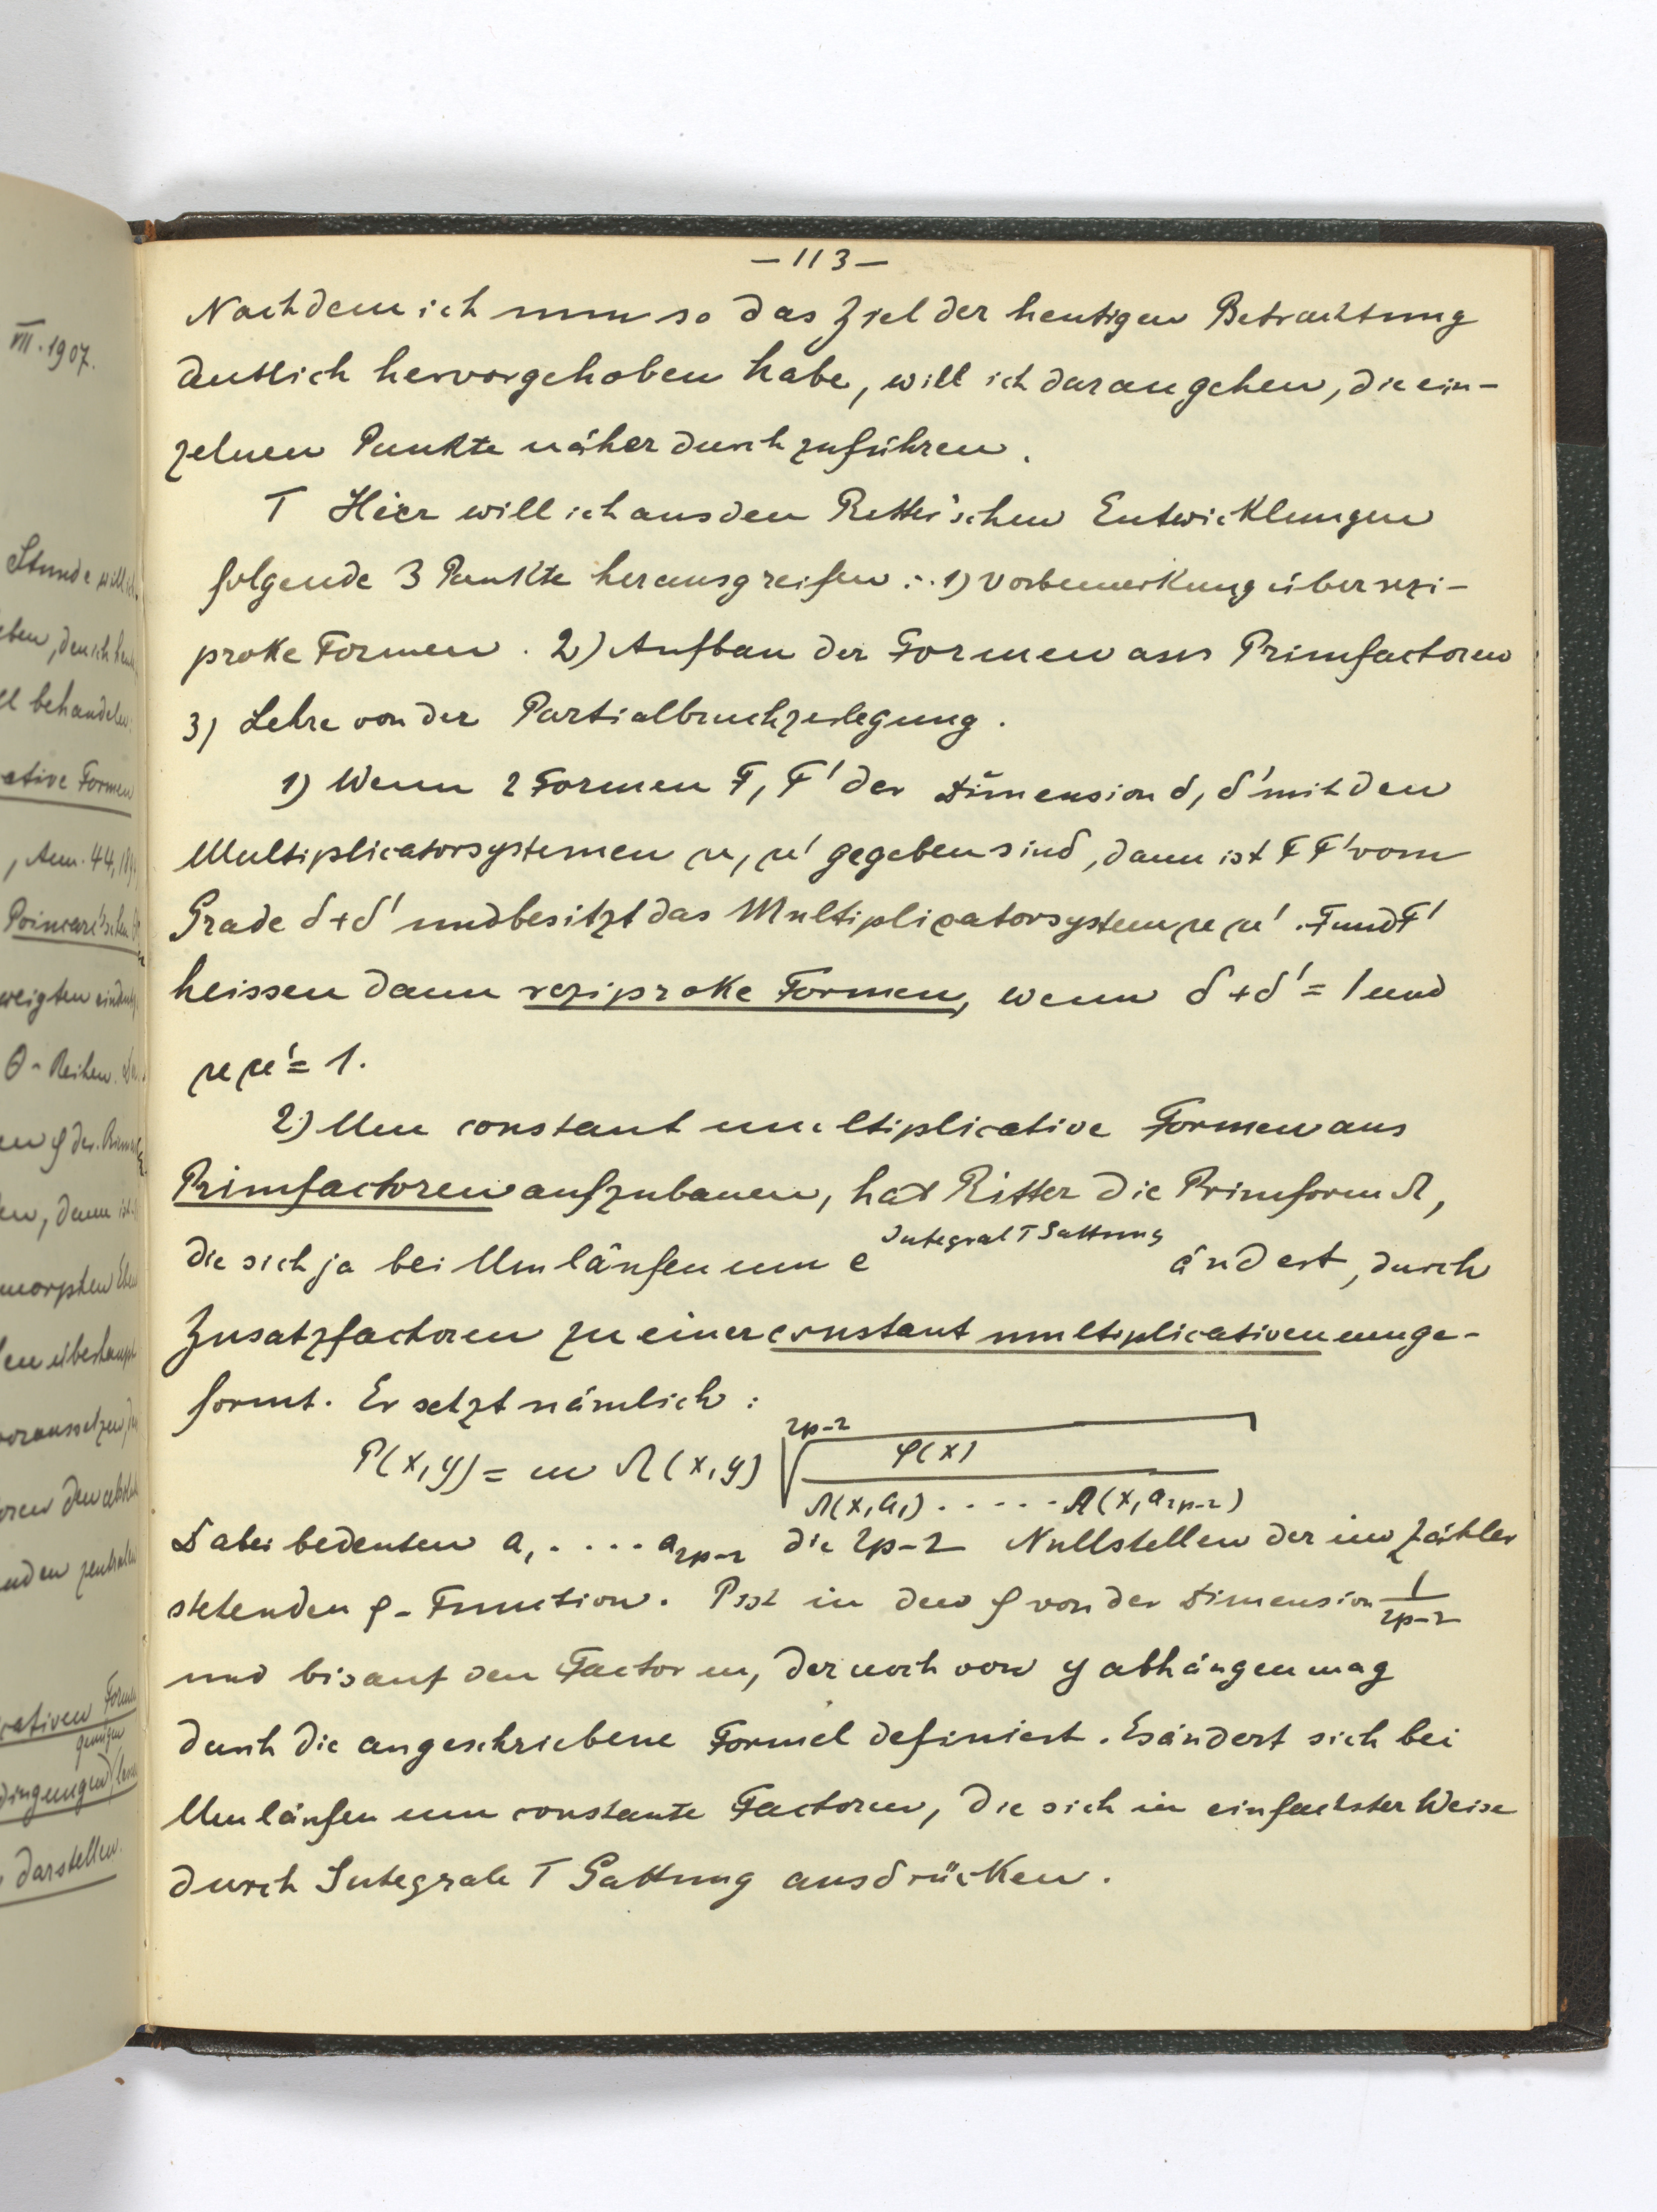 — 113 —
Nachdem ich nun so das Ziel der heutigen Betrachtung
deutlich hervorgehoben habe, will ich daran gehen, die ein-
zelnen Punkte näher durchzuführen.
I Hier will ich aus den Ritter'schen Entwicklungen
folgende 3 Punkte herausgreifen: 1) Vorbemerkung über rezi-
proke Formen. 2) Aufbau der Formen aus Primfactoren
3) Lehre von der Partialbruchzerlegung.
1) Wenn 2 Formen F, F' der Dimension δ, δ' mit den
Multiplicatorsystemen μ, μ' gegeben sind, dann ist F F' vom
Grade δ+δ' und besitzt das Multiplicatorsystem μ μ'. F und F'
heissen dann reziproke Formen, wenn δ+δ' = 1 und
μ μ' = 1.
2) Um constant multiplicative Formen aus
Primfactoren aufzubauen, hat Ritter die Primform Ω,
die sich ja bei Umläufen um e^{Integral I Gattung} ändert, durch
Zusatzfactoren zu einer constant multiplicativen umge-
formt. Er setzt nämlich:
P(x,y) = m Ω(x,y) \sqrt[2p-2]{\frac{φ(x)}{Ω(x,a_1) . . . . . Ω(x,a_{2p-2})}}
Dabei bedeuten a_1 . . . . a_{2p-2} die 2p-2 Nullstellen der im Zähler
stehenden φ-Function. P ist in den φ von der Dimension \frac{1}{2p-2}
und bis auf den Factor m, der noch von y abhängen mag
durch die angeschriebene Formel definiert. Es ändert sich bei
Umläufen um constante Factoren, die sich in einfachster Weise
durch Integrale I Gattung ausdrücken.
VII. 1907.
Stunde will ich
den ich
behandeln.
ative Formen
, Ann. 44,
Poincaré'schen
θ-Reihen.
, dann ist
morphen
überhaupt
voraussetzen
ativen Formen
genügen
dingungen
darstellen.